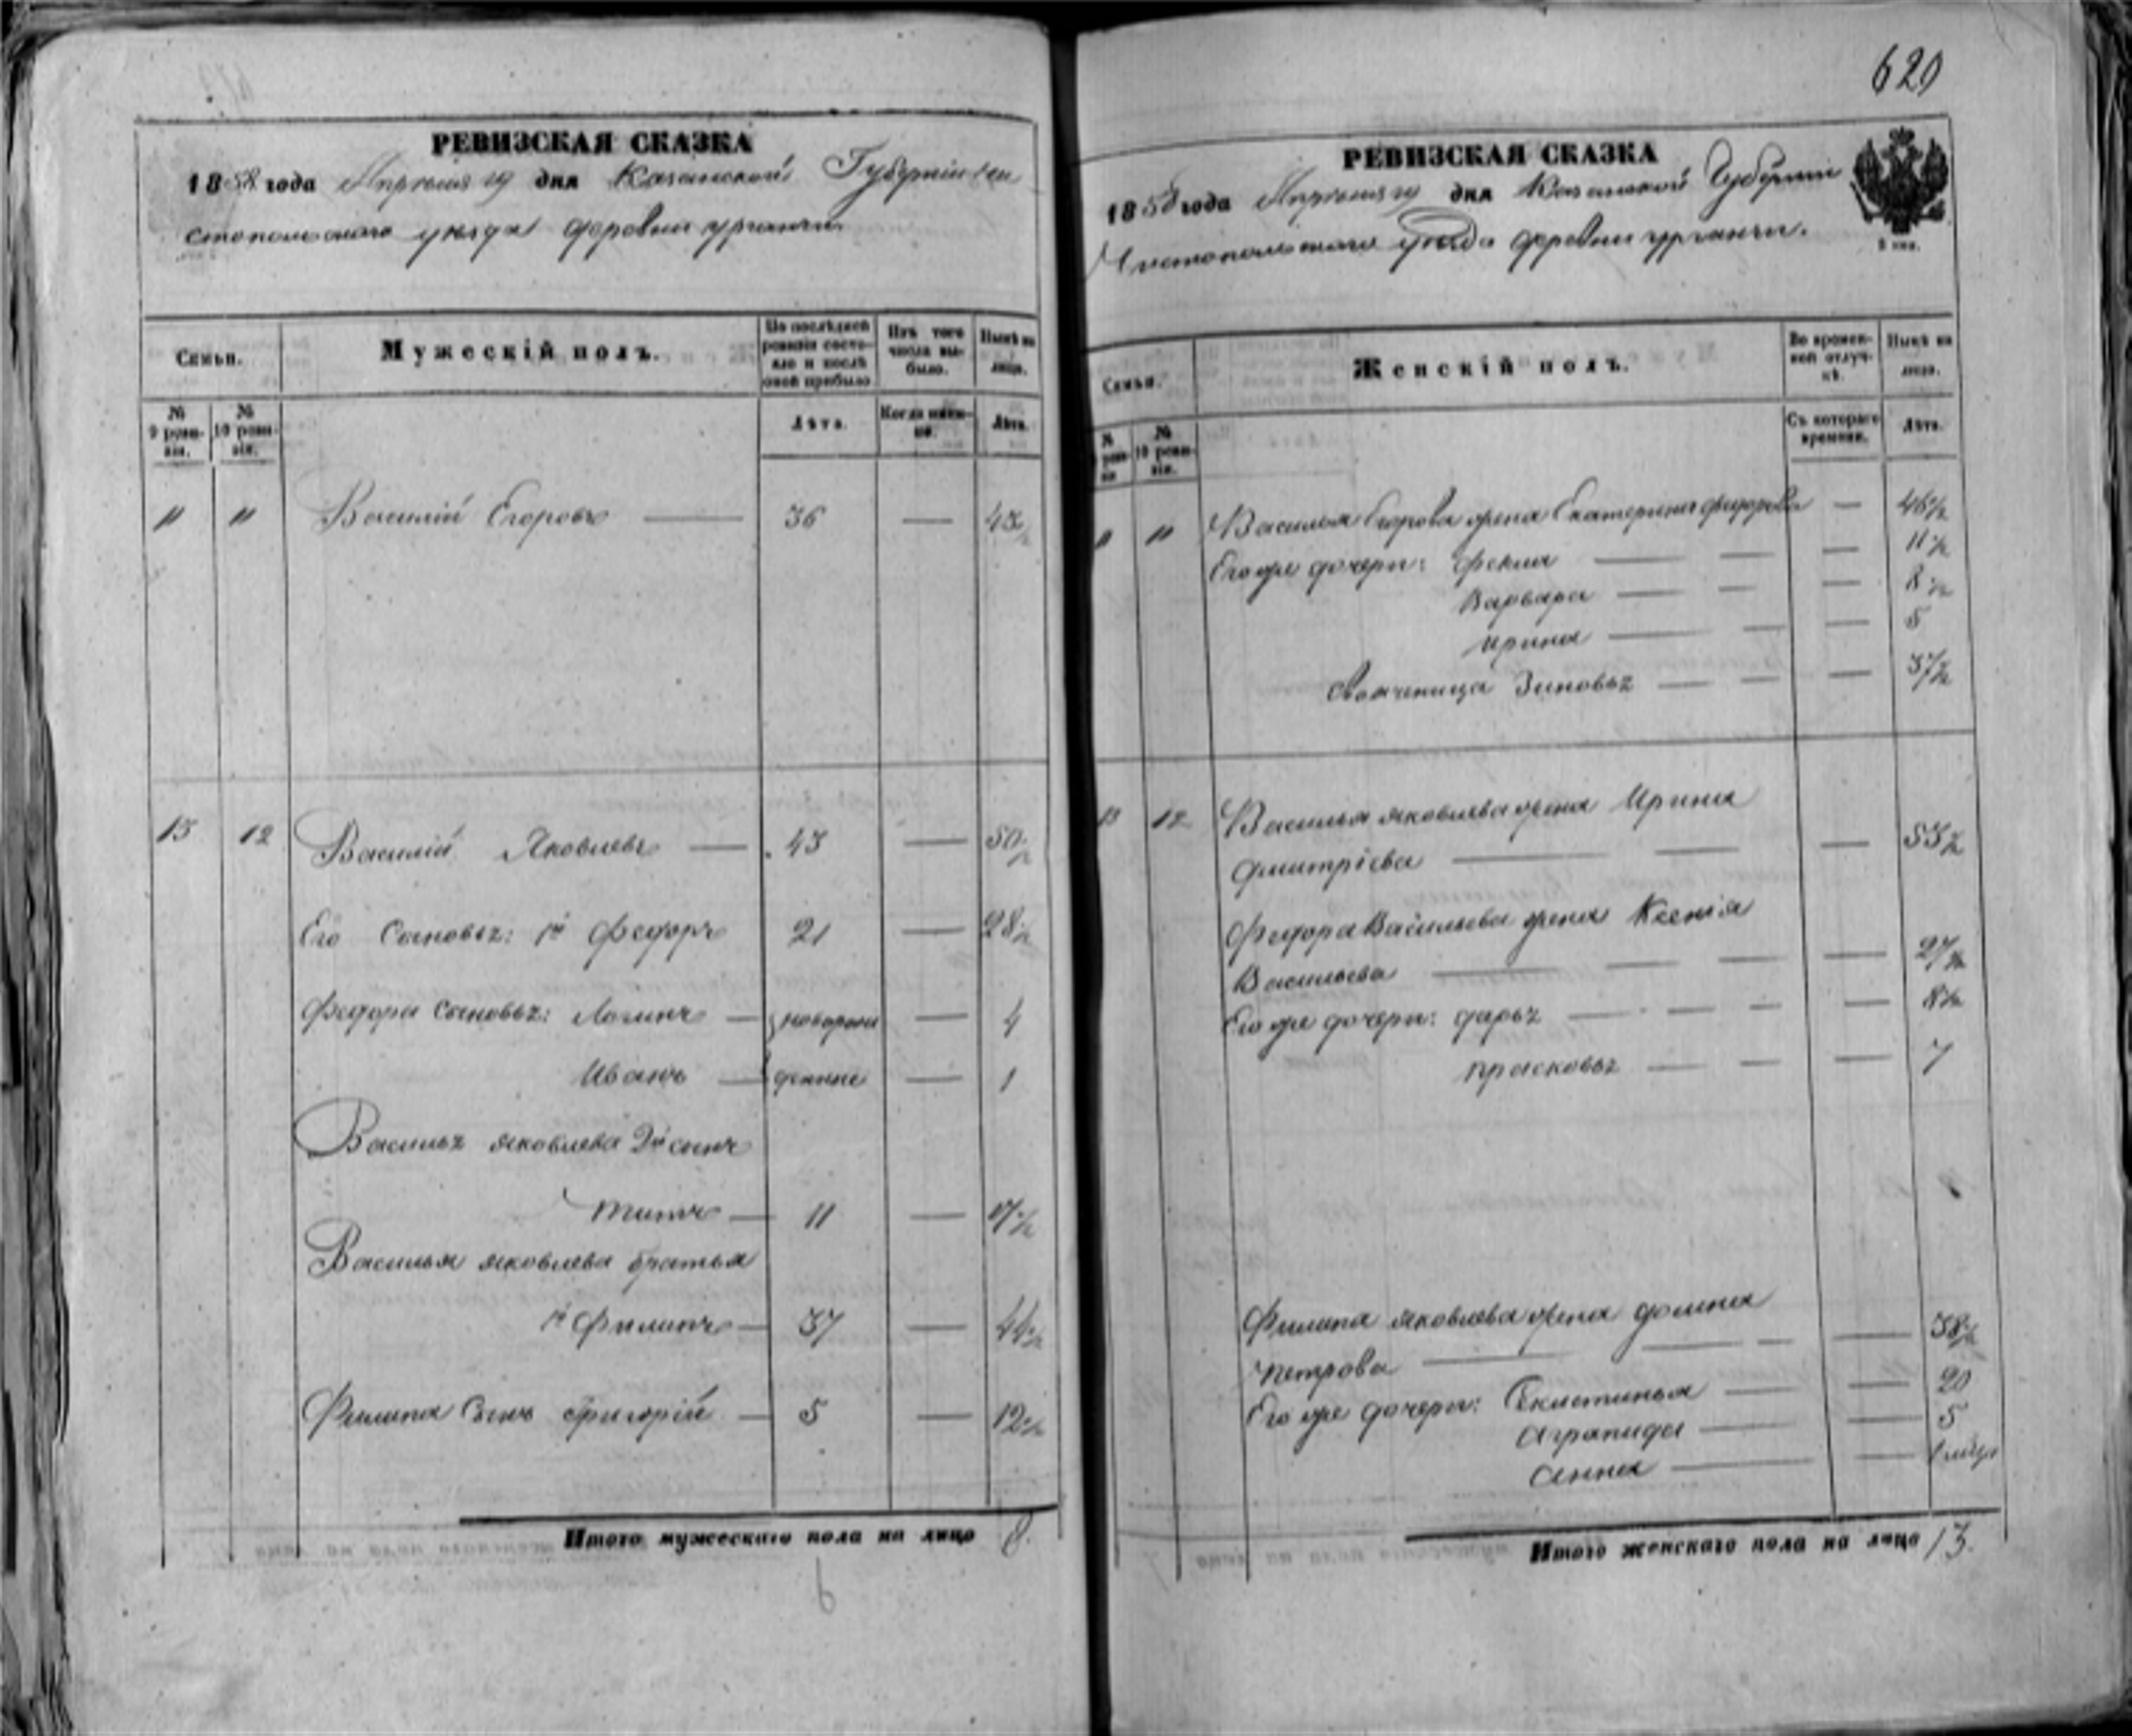 620
РЕВИЗСКАЯ СКАЗКА
1858 года Апреля 19 дня Казанской Губернiи Чи
стопольскаго уезда деревни Урганчи
Семьи.
Мужескiй полъ.
По послѣдней ревизiи состояло и послѣ оной прибыло
Изъ того числа выбыло.
Нынѣ на лицо.
№ 9 ревизiи.
№ 10 ревизiи.
Лѣта.
Когда именно.
Лѣта.
" " Василiй Егоровъ — 36 — 43½
13 12 Василiй Яковлевъ — 43 — 50½
Его Сыновья: 1й Федоръ 21 — 28½
Федора Сыновья: Логинъ — новорож — 4
Иванъ — денные — 1
Василья Яковлева 2й сынъ
Титъ — 11 — 17½
Василья Яковлева братья
1й Филипъ — 37 — 44½
Филипа Сынъ Григорiй — 5 — 12½
Итого мужескаго пола на лицо 8.
6
РЕВИЗСКАЯ СКАЗКА
1858 года Апреля 19 дня Казанской Губернiи
Чистопольскаго уезда деревни Урганчи.
Семьи.
Женскiй полъ.
Во временной отлучкѣ.
Нынѣ на лицо.
№ 9 ревизiи
№ 10 ревизiи.
Съ котораго времени.
Лѣта.
" " Василья Егорова жена Екатерина Федорова — 46½
Его же дочери: Фекла — 11½
Варвара — 8½
Ирина — 5
Свояченица Зиновья — 37½
13 12 Василья Яковлева жена Ирина
Дмитрiева — 53½
Федора Васильева жена Ксенiя
Васильева — 27½
Его же дочери: Дарья — 8½
Прасковья — 7
Филипа Яковлева жена Домна
Петрова — 38½
Его же дочери: Секлетинья — 20
Аграпида — 5
Анна —
Итого женскаго пола на лицо 13.